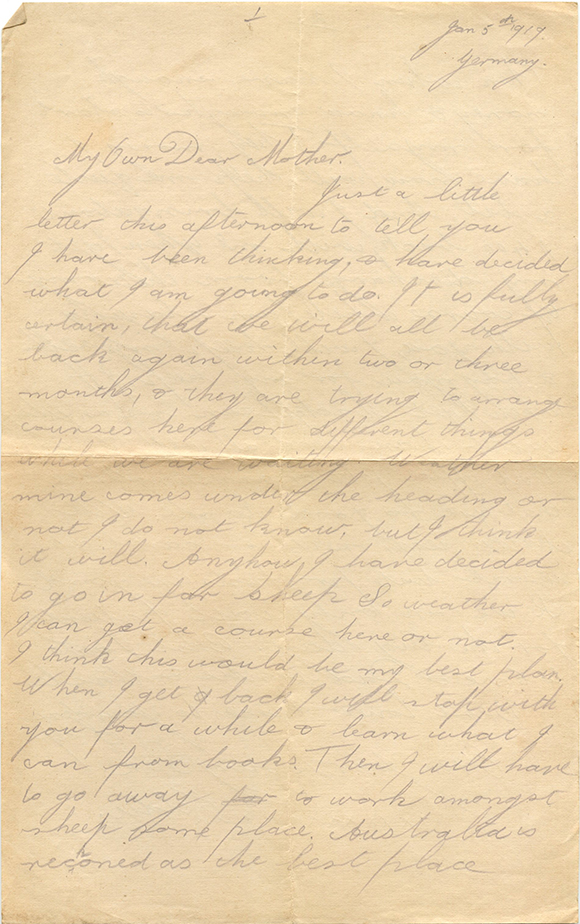 1
Jan 5th 1919.
Germany.
My Own Dear Mother.
Just a little
letter this afternoon to tell you
I have been thinking, & have decided
what I am going to do. It is fully
certain, that we will all be
back again within two or three
months, & they are trying to arrange
courses here for different things
while we are waiting Weather
mine comes under the heading or
not I do not know, but I think
it will. Anyhow, I have decided
to go in for sheep So weather
I can get a course here or not.
I think this would be my best plan.
When I get back I will stop with
you for a while & learn what I
can from books. Then I will have
to go away for to work amongst
sheep some place. Australia is
reconed as the best place